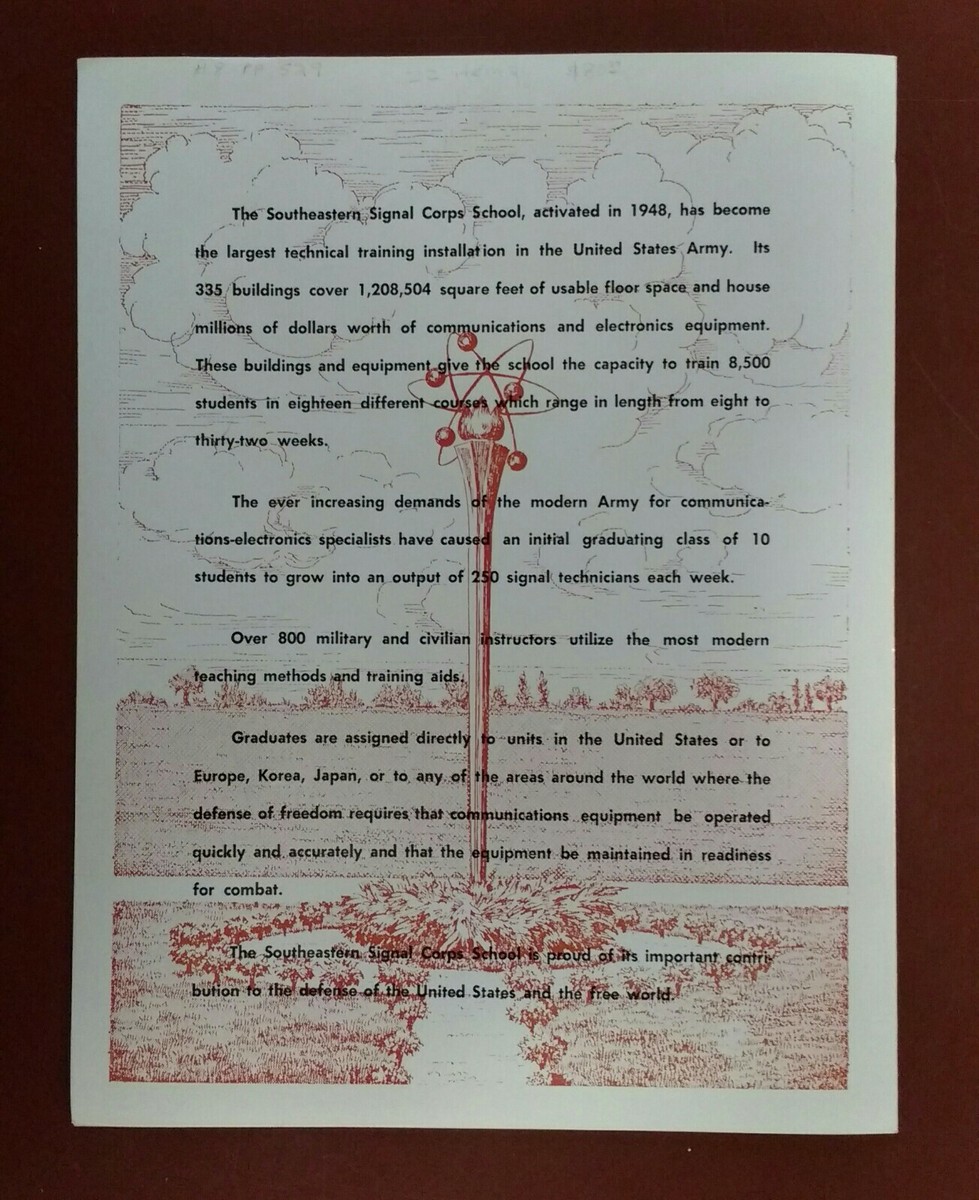 The Southeastern Signal Corps School, activated in 1948, has become
the largest technical training installation in the United States Army. Its
335 buildings cover 1,208,504 square feet of usable floor space and house
millions of dollars worth of communications and electronics equipment.
These buildings and equipment give the school the capacity to train 8,500
students in eighteen different courses which range in length from eight to
thirty-two weeks.
The ever increasing demands of the modern Army for communica-
tions-electronics specialists have caused an initial graduating class of 10
students to grow into an output of 250 signal technicians each week.
Over 800 military and civilian instructors utilize the most modern
teaching methods and training aids.
Graduates are assigned directly to units in the United States or to
Europe, Korea, Japan, or to any of the areas around the world where the
defense of freedom requires that communications equipment be operated
quickly and accurately and that the equipment be maintained in readiness
for combat.
The Southeastern Signal Corps School is proud of its important contri-
bution to the defense of the United States and the free world.